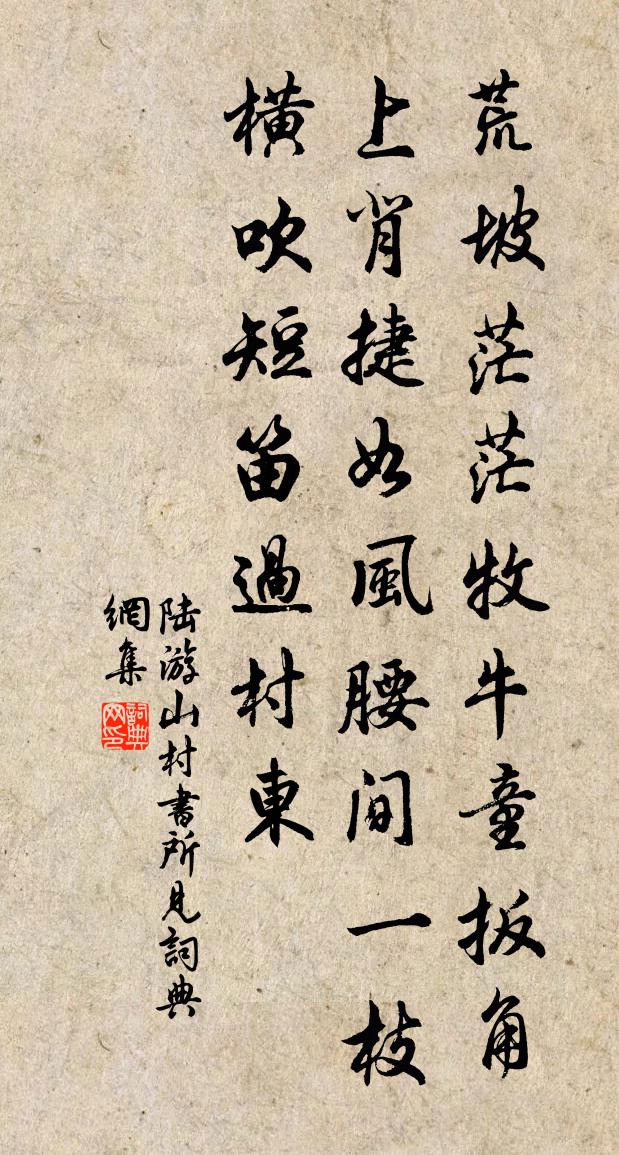 荒坡茫茫牧牛童扳角
上背捷如風腰間一枝
橫吹短笛過村東
陆游山村書所見詞典
網集
詞典
网印